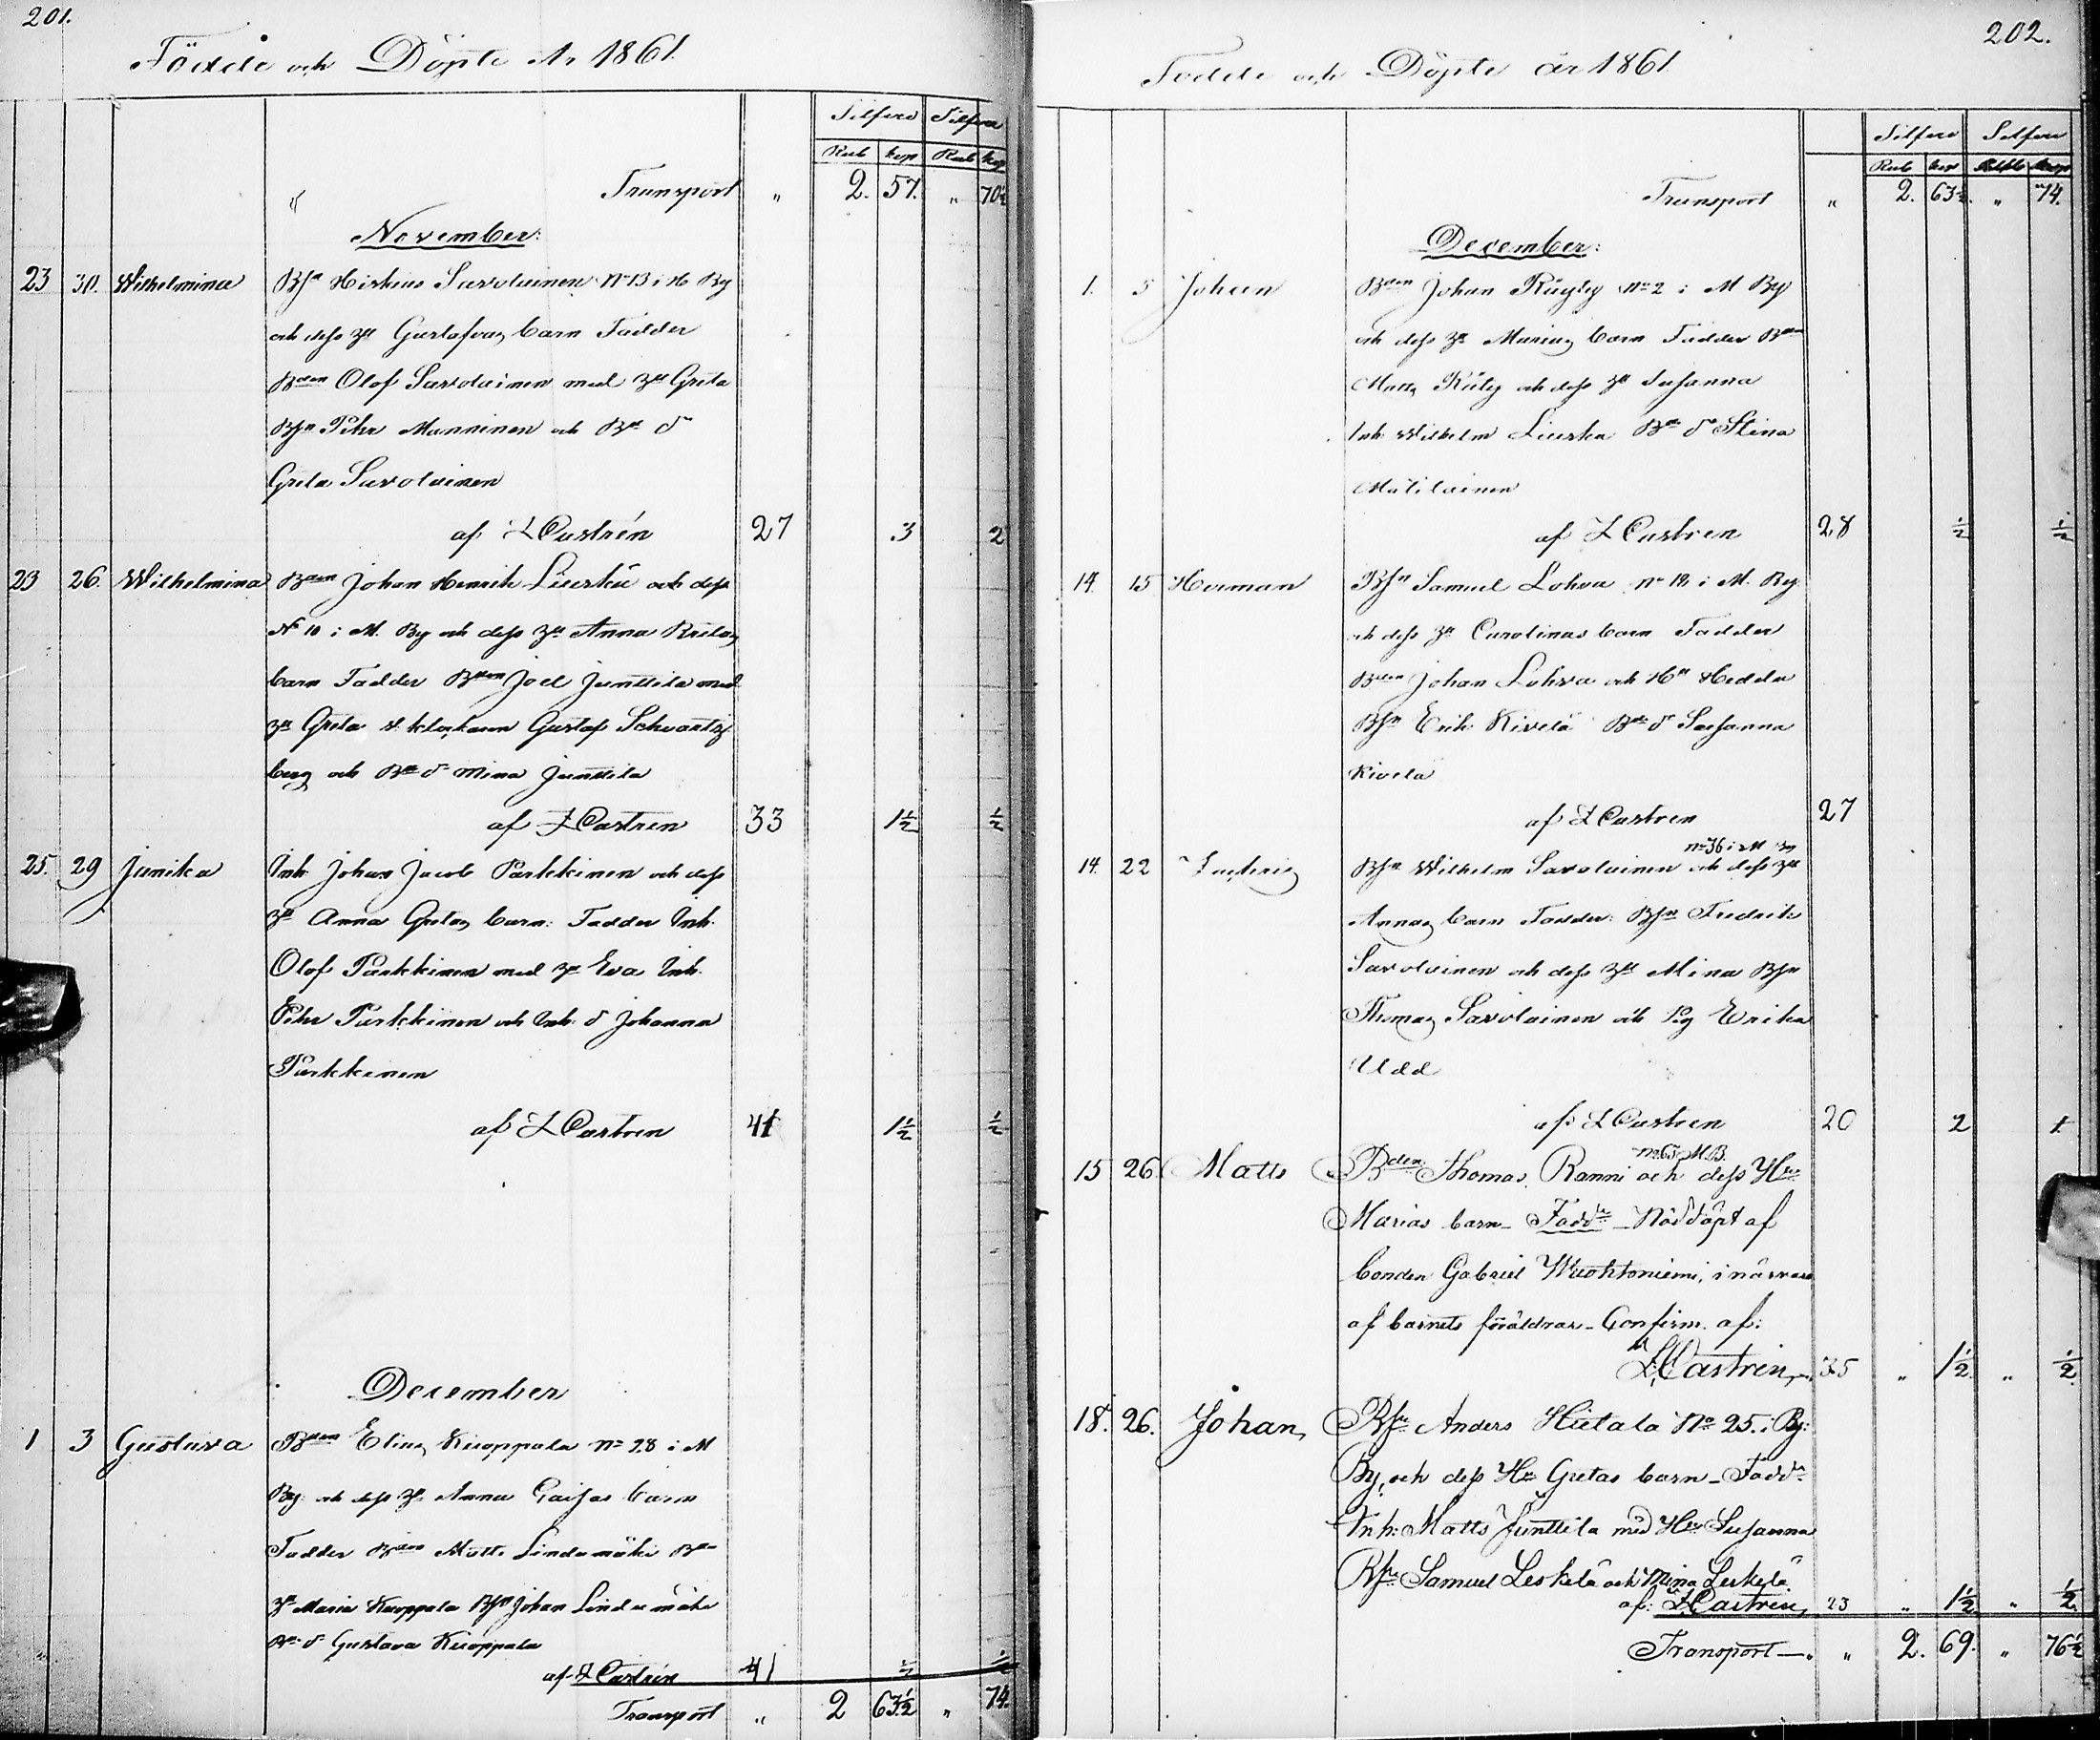 201.
Födde och Döpte År 1861.
Silfver Silfver
Rub kop Rub kop
" Transport " 2. 57. " 70½
November:
23 30. Wilhelmina Bsn Hiskias Savolainen No 13 i M By
och dess Hu Gustafvas barn Fadder
Bden Olof Savolainen med Hu Greta
Bsn Pehr Manninen och Bde dr
Greta Savolainen
af L Castrén 27 3 2
23 26. Wilhelmina Bden Johan Henrik Liuskä och dess
No 10 i M. By och dess Hu Anna Britas
barn Fadder Bden Joel Junttila med
Hu Greta v. klockaren Gustaf Schvartz
berg och Bde dr Mina Junttila
af L Castrén 33 1½ ½
25. 29 Janika Inh. Johan Jacob Parkkinen och dess
Hu Anna Gretas barn: Fadder Inh.
Olof Parkkinen med Hu Eva Inh.
Pehr Parkkinen och Inh. d Johanna
Parkkinen
af L Castren 41 1½ ½
December
1 3 Gustava Bden Elias Kuoppala No 28 i M
By och dess Hu Anna Caisas barn
Fadder Bden Matts Lindemäki Bde
Hu Maria Kuoppala Bsn Johan Lindemäki
Bde dr Gustava Kuoppala
af L Castrén 41 ½ ½
Transport " 2 63½ " 74.
202.
Födde och Döpte år 1861
Silfver Silfver
Rub kop Rub kop
Transport " 2. 63½. " 74.
December:
1. 5 Johan Bden Johan Räyly No 2 i M By
och dess Hu Marias barn Fadder Bden
Matts Räly och dess Hu Susanna
Inh. Wilhelm Liuska Bde dr Stina
Matilainen
af L Castren 28 ½ ½
14. 15 Herman Bsn Samuel Lohva No 18 i M. By
och dess Hu Carolinas barn Fadder
Bden Johan Lohva och Hu Hedda
Bsn Erik Kivelä Bde dr Susanna
Kivelä
af L Castren 27
No 36 i M By
14. 22 Zachris Bsn Wilhelm Savolainen och dess Hu
Annas barn Fadder: Bsn Fredrik
Savolainen och dess Hu Mina Bsn
Thomas Savolainen och Pig Erika
Udd
af L Castren 20 2 1
No 65 M.B.
15 26. Matts Bden Thomas Ranni och dess Hu
Marias barn – Faddr – Nöddöpt af
bonden Gabriel Wuohtoniemi, i närvaro
af barnets föräldrar – Confirm. af:
L Castrén, 35 " 1½. " ½.
18. 26. Johan, Bsn Anders Hietala No 25. i By:
By, och dess Hu Gretas barn – Faddr
Inh: Matts Junttila med Hu Susanna
Bsn Samuel Leskelä och Mina Leskelä
af: L Castrén, 23 " 1½ " ½.
Transport – " " 2. 69. " 76½